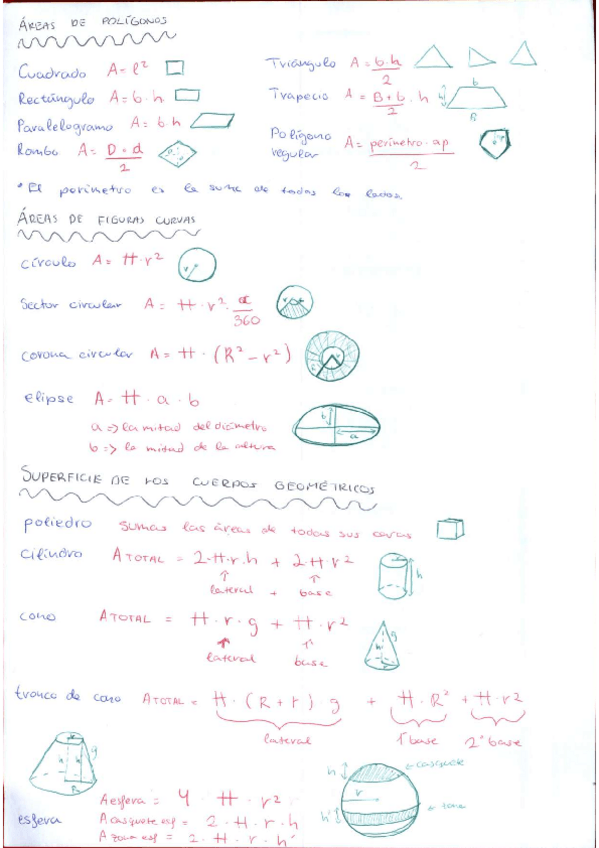 ÁREAS DE POLÍGONOS
Cuadrado A = l²
Rectángulo A = b · h
Paralelogramo A = b h
Rombo A = D · d / 2
Triángulo A = b · h / 2
Trapecio A = B + b / 2 · h
b
h
B
Polígono regular A = perímetro · ap / 2
* El perímetro es la suma de todos los lados.
ÁREAS DE FIGURAS CURVAS
círculo A = π · r²
r
Sector circular A = π · r² · α / 360
r α
corona circular A = π · (R² - r²)
elipse A = π · a · b
a => la mitad del diámetro
b => la mitad de la altura
b
a
SUPERFICIE DE LOS CUERPOS GEOMÉTRICOS
poliedro sumas las áreas de todas sus caras
cilindro A TOTAL = 2 · π · r · h + 2 · π · r²
lateral + base
h
cono A TOTAL = π · r · g + π · r²
lateral base
g
h
tronco de cono A TOTAL = π · (R + r) g + π · R² + π · r²
lateral 1ª base 2ª base
g
h
R
esfera
A esfera = 4 · π · r²
A casquete esf = 2 · π · r · h
A zona esf = 2 · π · r · h'
h
casquete
r
h'
zona